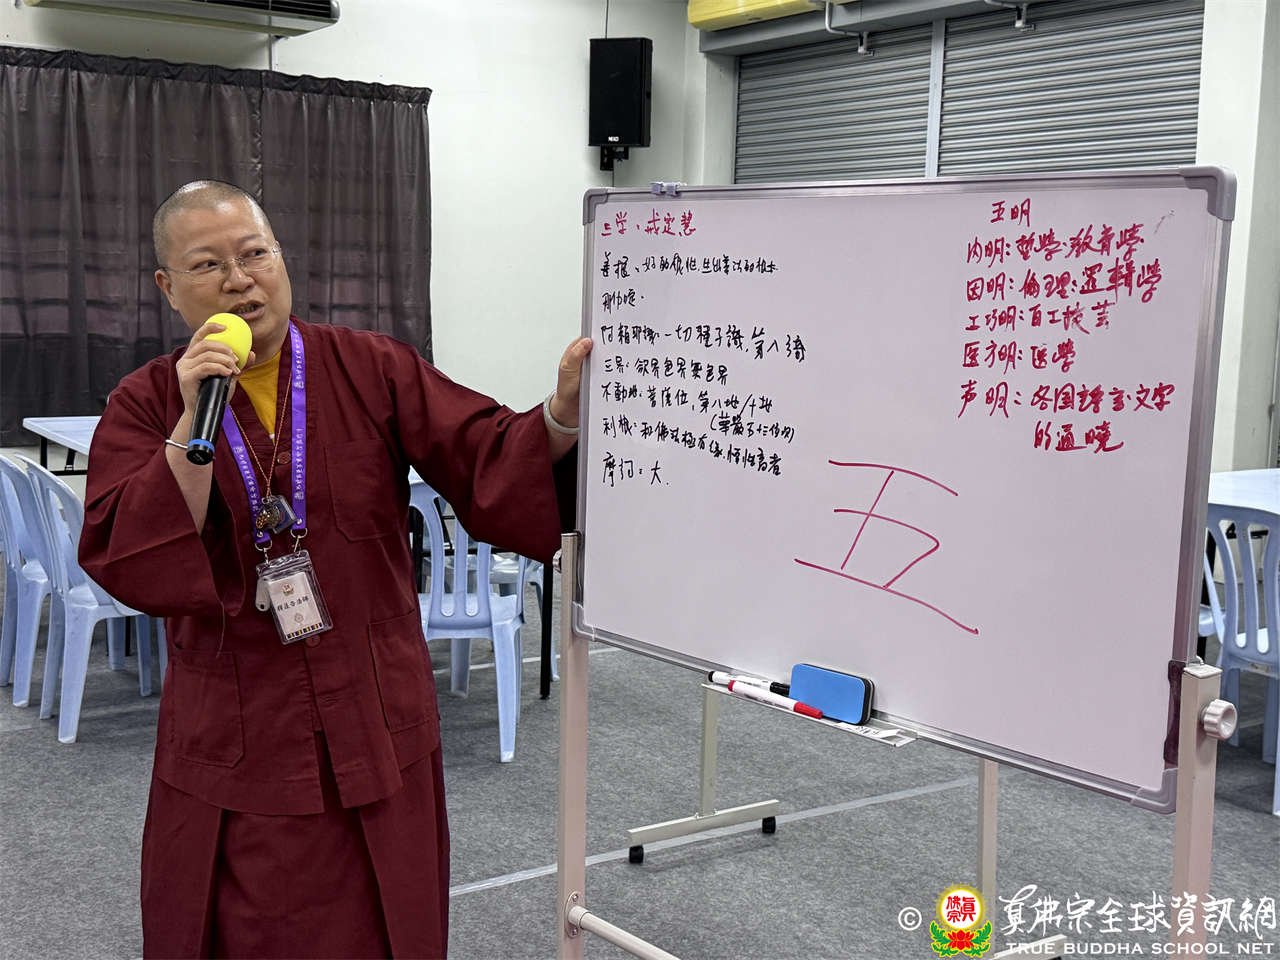 三学、戒定慧
善根、好的根性.生出善法的根本
那伽定.
阿賴耶識:一切種子識,第八識
三界:欲界色界無色界
不動地:菩薩位,第八地/十地
(華嚴五十三位次)
利根:和佛法極有缘.悟性高者
摩訶:大.
五明
内明:哲學.教育學
因明:倫理:邏輯學
工巧明:百工技芸
医方明:医學
声明:各国語言.文字
的通曉
五
釋蓮
©
真佛宗
真佛宗全球資訊網
TRUE BUDDHA SCHOOL NET